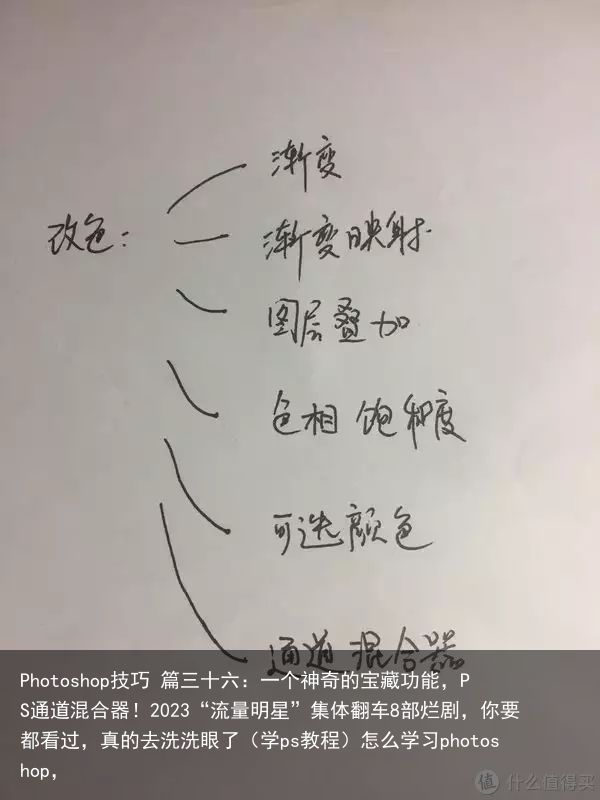 渐变
改色：
渐变映射
图层叠加
色相 饱和度
可选颜色
通道混合器
Photoshop技巧 篇三十六：一个神奇的宝藏功能，P
S通道混合器！2023“流量明星”集体翻车8部烂剧，你要
都看过，真的去洗洗眼了（学ps教程）怎么学习photos
hop，
值 什么值得买